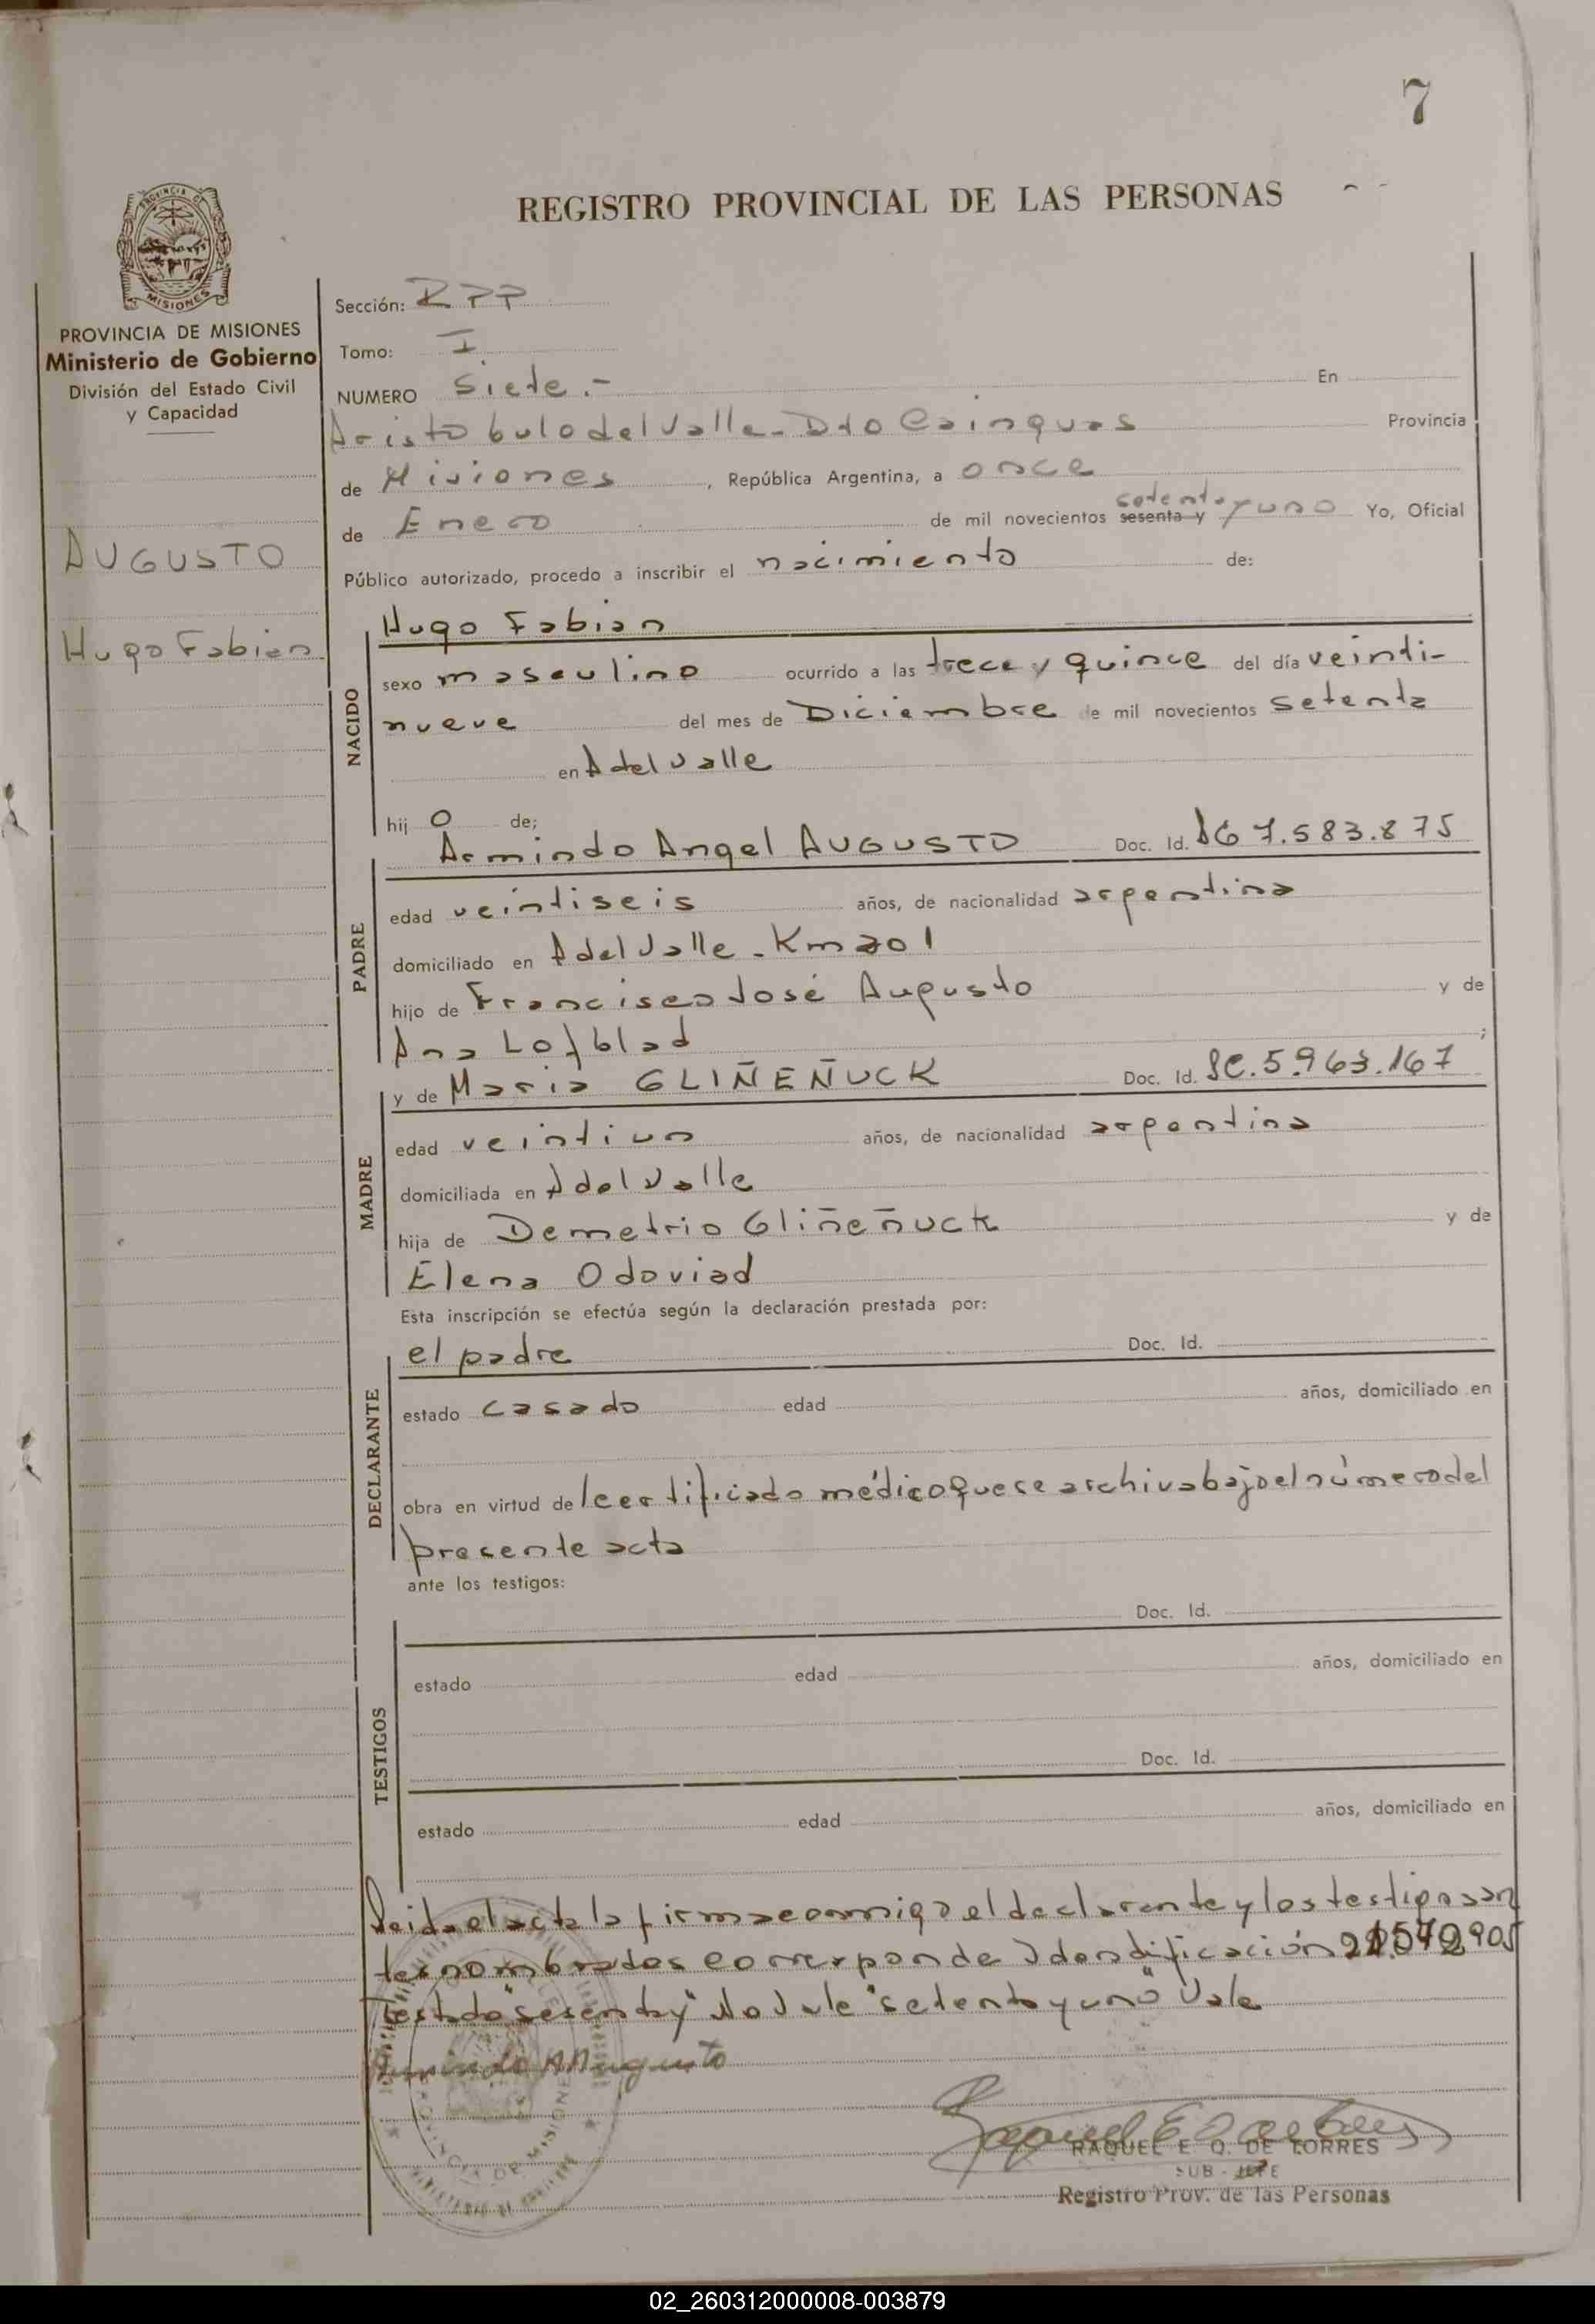 7
REGISTRO PROVINCIAL DE LAS PERSONAS
PROVINCIA
MISIONES
PROVINCIA DE MISIONES
Ministerio de Gobierno
División del Estado Civil
y Capacidad
AUGUSTO
Hugo Fabian
Sección: RPP
Tomo: I
NUMERO Siete.- En
Aristobulo del Valle - Dto Cainguas Provincia
de Misiones, República Argentina, a once
de Enero de mil novecientos sesenta y setenta y uno Yo, Oficial
Público autorizado, procedo a inscribir el nacimiento de:
NACIDO
Hugo Fabian
sexo masculino ocurrido a las trece y quince del día veinti-
nueve del mes de Diciembre de mil novecientos setenta
en A del Valle
hij o de;
PADRE
Armindo Angel AUGUSTO Doc. Id. 7.583.875
edad veintiseis años, de nacionalidad argentina
domiciliado en A del Valle - Km 201
hijo de Francisco José Augusto y de
Ana Lofblad;
MADRE
y de Maria GLIÑEÑUCK Doc. Id. 5.963.167
edad veintiun años, de nacionalidad argentina
domiciliada en A del Valle
hija de Demetrio Gliñeñuck y de
Elena Odoviad
Esta inscripción se efectúa según la declaración prestada por:
DECLARANTE
el padre Doc. Id.
estado casado edad años, domiciliado en
obra en virtud de certificado médico que se archiva bajo el número del
presente acta
ante los testigos:
TESTIGOS
Doc. Id.
estado edad años, domiciliado en
Doc. Id.
estado edad años, domiciliado en
Leida el acta la firma conmigo el declarante y los testigos an
tes nombrados corresponde Identificación
Testado "sesenta y" No Vale "setenta y uno" Vale
Armindo A Augusto
RAQUEL E. Q. DE TORRES
SUB - JEFE
Registro Prov. de las Personas
02_260312000008-003879